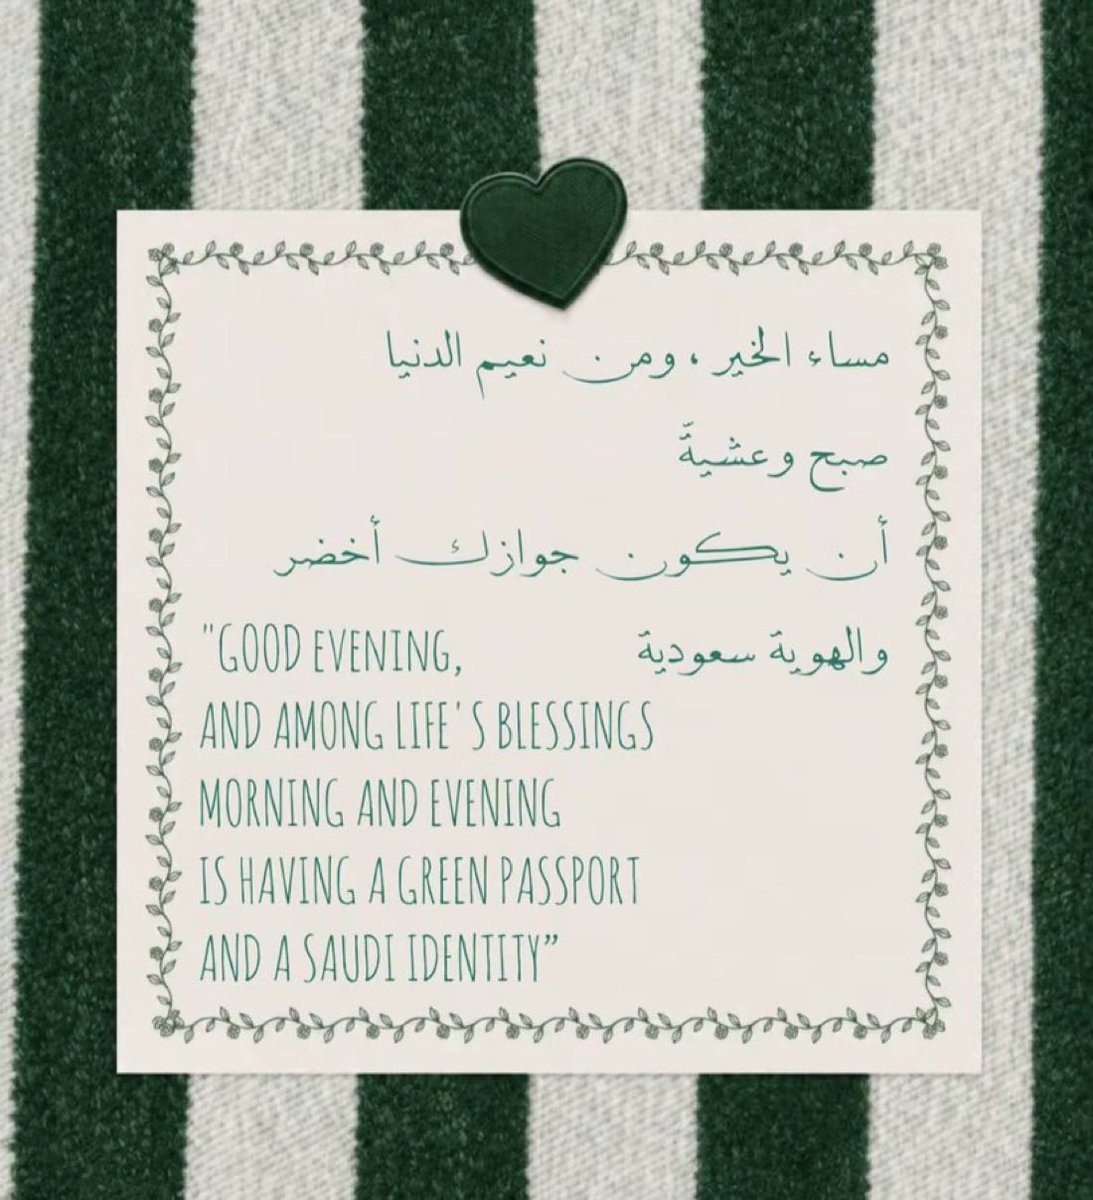 مساء الخير ، ومن نعيم الدنيا
صبح وعشيةّ
أن يكون جوازك أخضر
والهوية سعودية
"GOOD EVENING,
AND AMONG LIFE'S BLESSINGS
MORNING AND EVENING
IS HAVING A GREEN PASSPORT
AND A SAUDI IDENTITY”